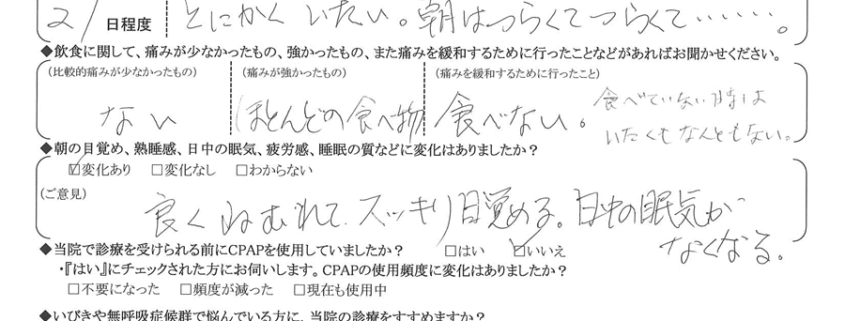 21 日程度 とにかくいたい。朝はつらくてつらくて……。
◆飲食に関して、痛みが少なかったもの、強かったもの、また痛みを緩和するために行ったことなどがあればお聞かせください。
(比較的痛みが少なかったもの) (痛みが強かったもの) (痛みを緩和するために行ったこと)
ない ほとんどの食べ物 食べない。 食べていない時は
いたくもなんともない。
◆朝の目覚め、熟睡感、日中の眠気、疲労感、睡眠の質などに変化はありましたか?
☑変化あり □変化なし □わからない
(ご意見)
良くねむれて、スッキリ目覚める。日中の眠気が
なくなる。
◆当院で診療を受けられる前にCPAPを使用していましたか? □はい ☑いいえ
・『はい』にチェックされた方にお伺いします。CPAPの使用頻度に変化はありましたか?
□不要になった □頻度が減った □現在も使用中
◆いびきや無呼吸症候群で悩んでいる方に、当院の診療をすすめますか?